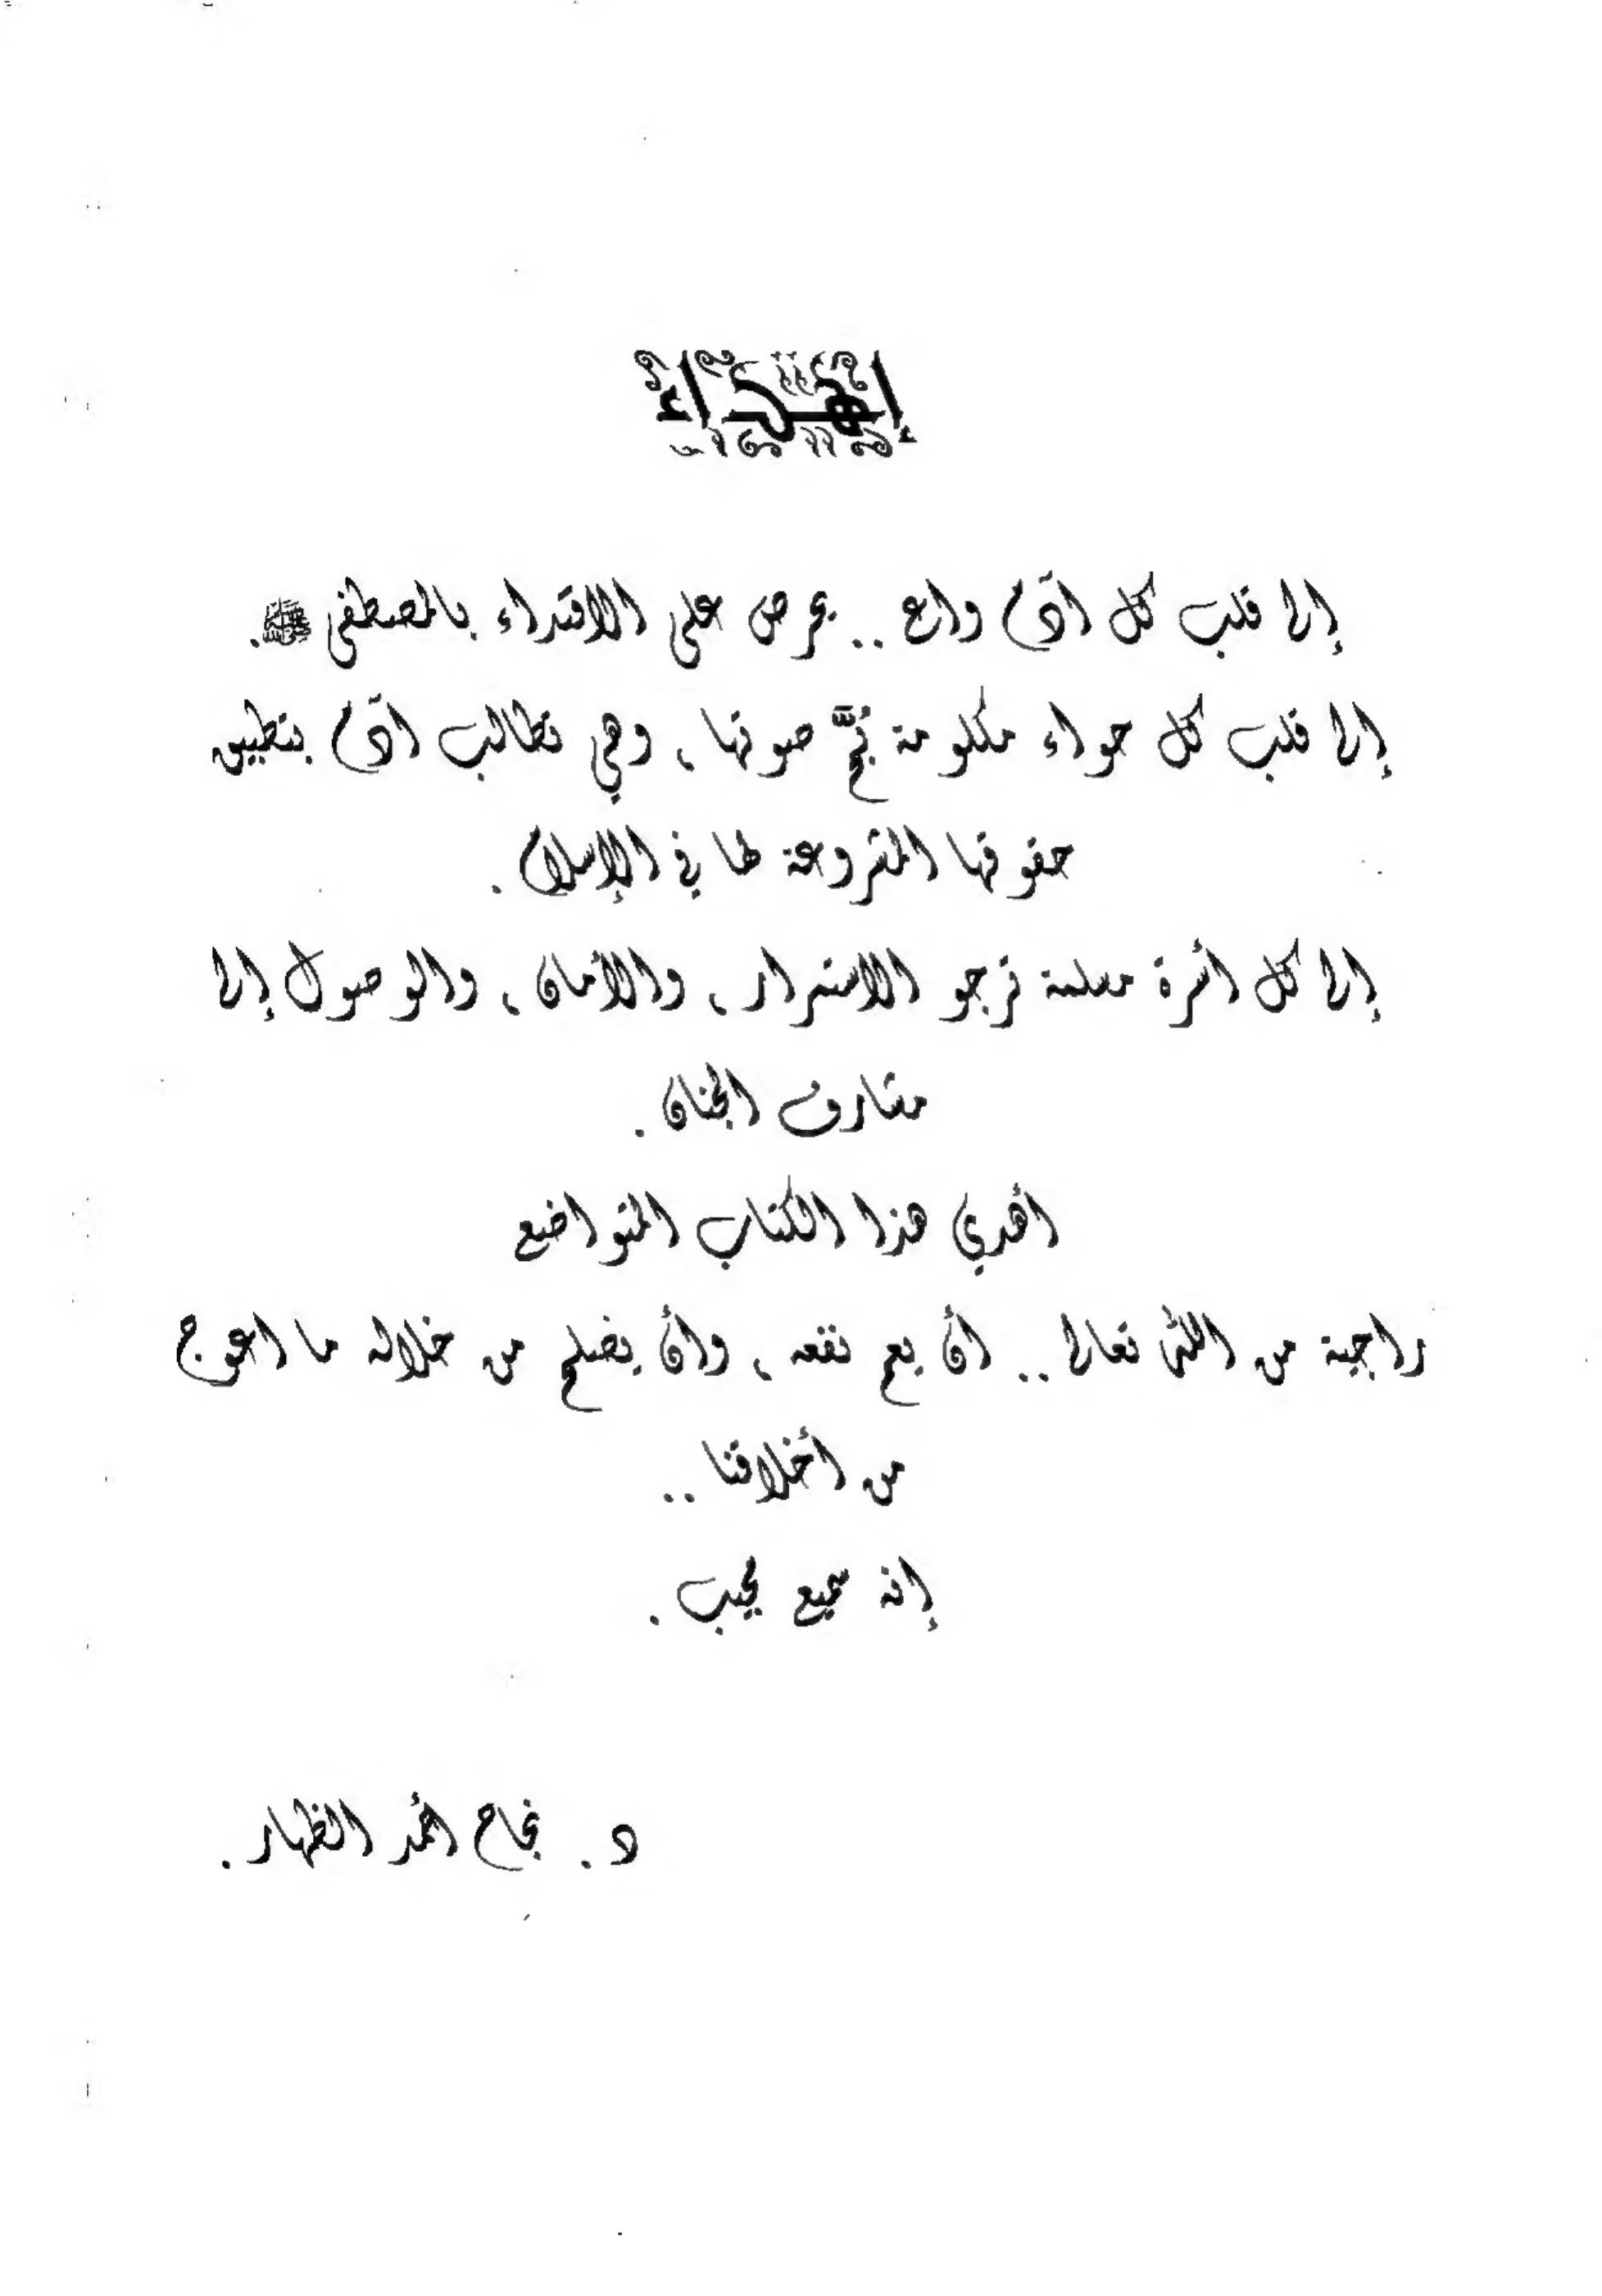 إهداء
إلى قلب كل آدم واع .. يحرص على الاقتداء بالمصطفى ﷺ.
إلى قلب كل حواء مكلومة بُحَّ صوتها ، وهي تطالب آدم بتطبيق
حقوقها المشروعة لها في الإسلام .
إلى كل أسرة مسلمة ترجو الاستقرار ، والأمان ، والوصول إلى
مشارف الجنان .
أهدي هذا الكتاب المتواضع
راجية من الله تعالى .. أن يعم نفعه ، وأن يصلح من خلاله ما اعوج
من أخلاقنا ..
إنه سميع مجيب .
د . نجاح أحمد الظهار .